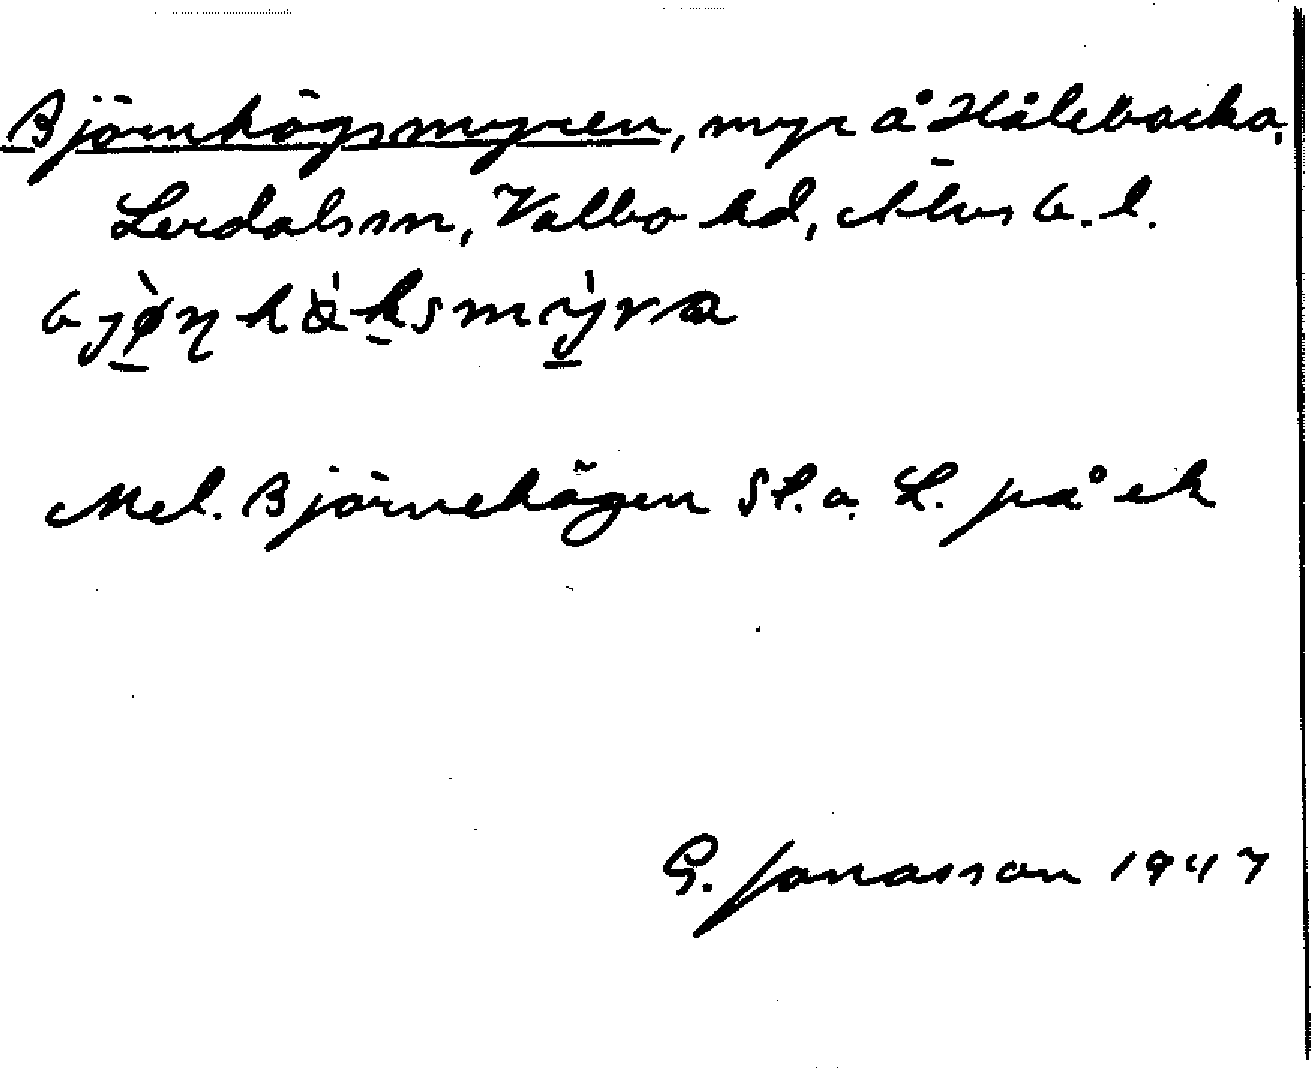 Björnhögsmyren, myr å Hålebacka,
Lerdals sn, Valbo hd, Älvsb. l.
Mel. Björnehögen St. o. L. på ek
G. Jonasson 1947